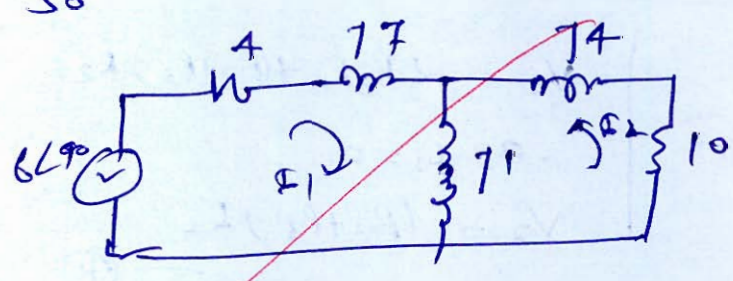 4 J7 J4
6∠90 I1 J1 I2 10